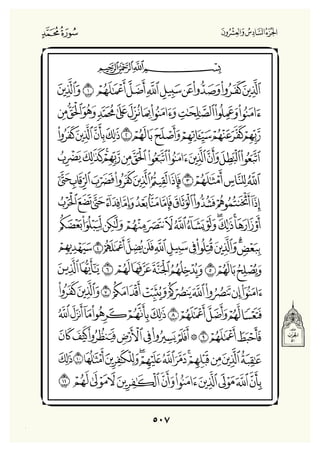 الجزء السادس والعشرون
سورة محمد
بسم الله الرحمن الرحيم
الذين كفروا وصدوا عن سبيل الله أضل أعمالهم ١ والذين
ءامنوا وعملوا الصالحات وءامنوا بما نزل على محمد وهو الحق من
ربهم كفر عنهم سيئاتهم وأصلح بالهم ٢ ذلك بأن الذين كفروا
اتبعوا الباطل وأن الذين ءامنوا اتبعوا الحق من ربهم كذلك يضرب
الله للناس أمثالهم ٣ فإذا لقيتم الذين كفروا فضرب الرقاب حتى
إذا أثخنتموهم فشدوا الوثاق فإما منا بعد وإما فداء حتى تضع الحرب
أوزارها ذلك ولو يشاء الله لانتصر منهم ولكن ليبلوا بعضكم
ببعض والذين قتلوا في سبيل الله فلن يضل أعمالهم ٤ سيهديهم
ويصلح بالهم ٥ ويدخلهم الجنة عرفها لهم ٦ يأيها الذين
ءامنوا إن تنصروا الله ينصركم ويثبت أقدامكم ٧ والذين كفروا
فتعسا لهم وأضل أعمالهم ٨ ذلك بأنهم كرهوا ما أنزل الله
فأحبط أعمالهم ٩ ۞ أفلم يسيروا في الأرض فينظروا كيف كان
عاقبة الذين من قبلهم دمر الله عليهم وللكافرين أمثالها ١٠ ذلك
بأن الله مولى الذين ءامنوا وأن الكافرين لا مولى لهم ١١
٥٠٧